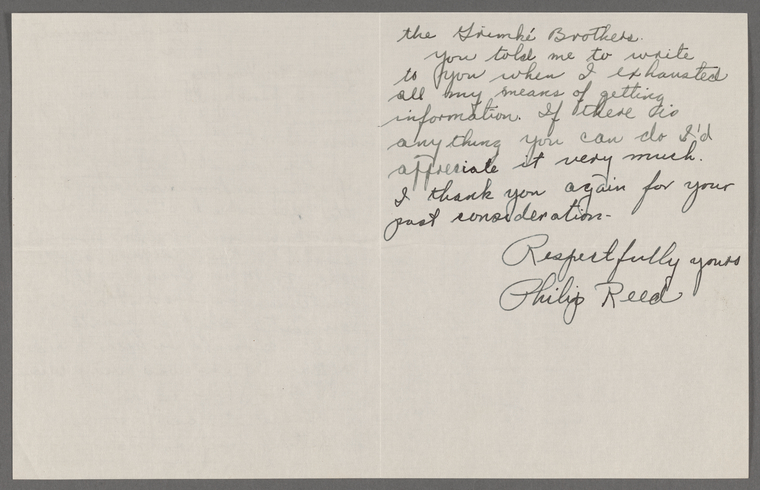 the Grimké Brothers.
you told me to write
to you when I exhausted
all my means of getting
information. If there is
anything you can do I'd
appresiate it very much.
I thank you again for your
past consideration-
Respectfully yours
Philip Reed